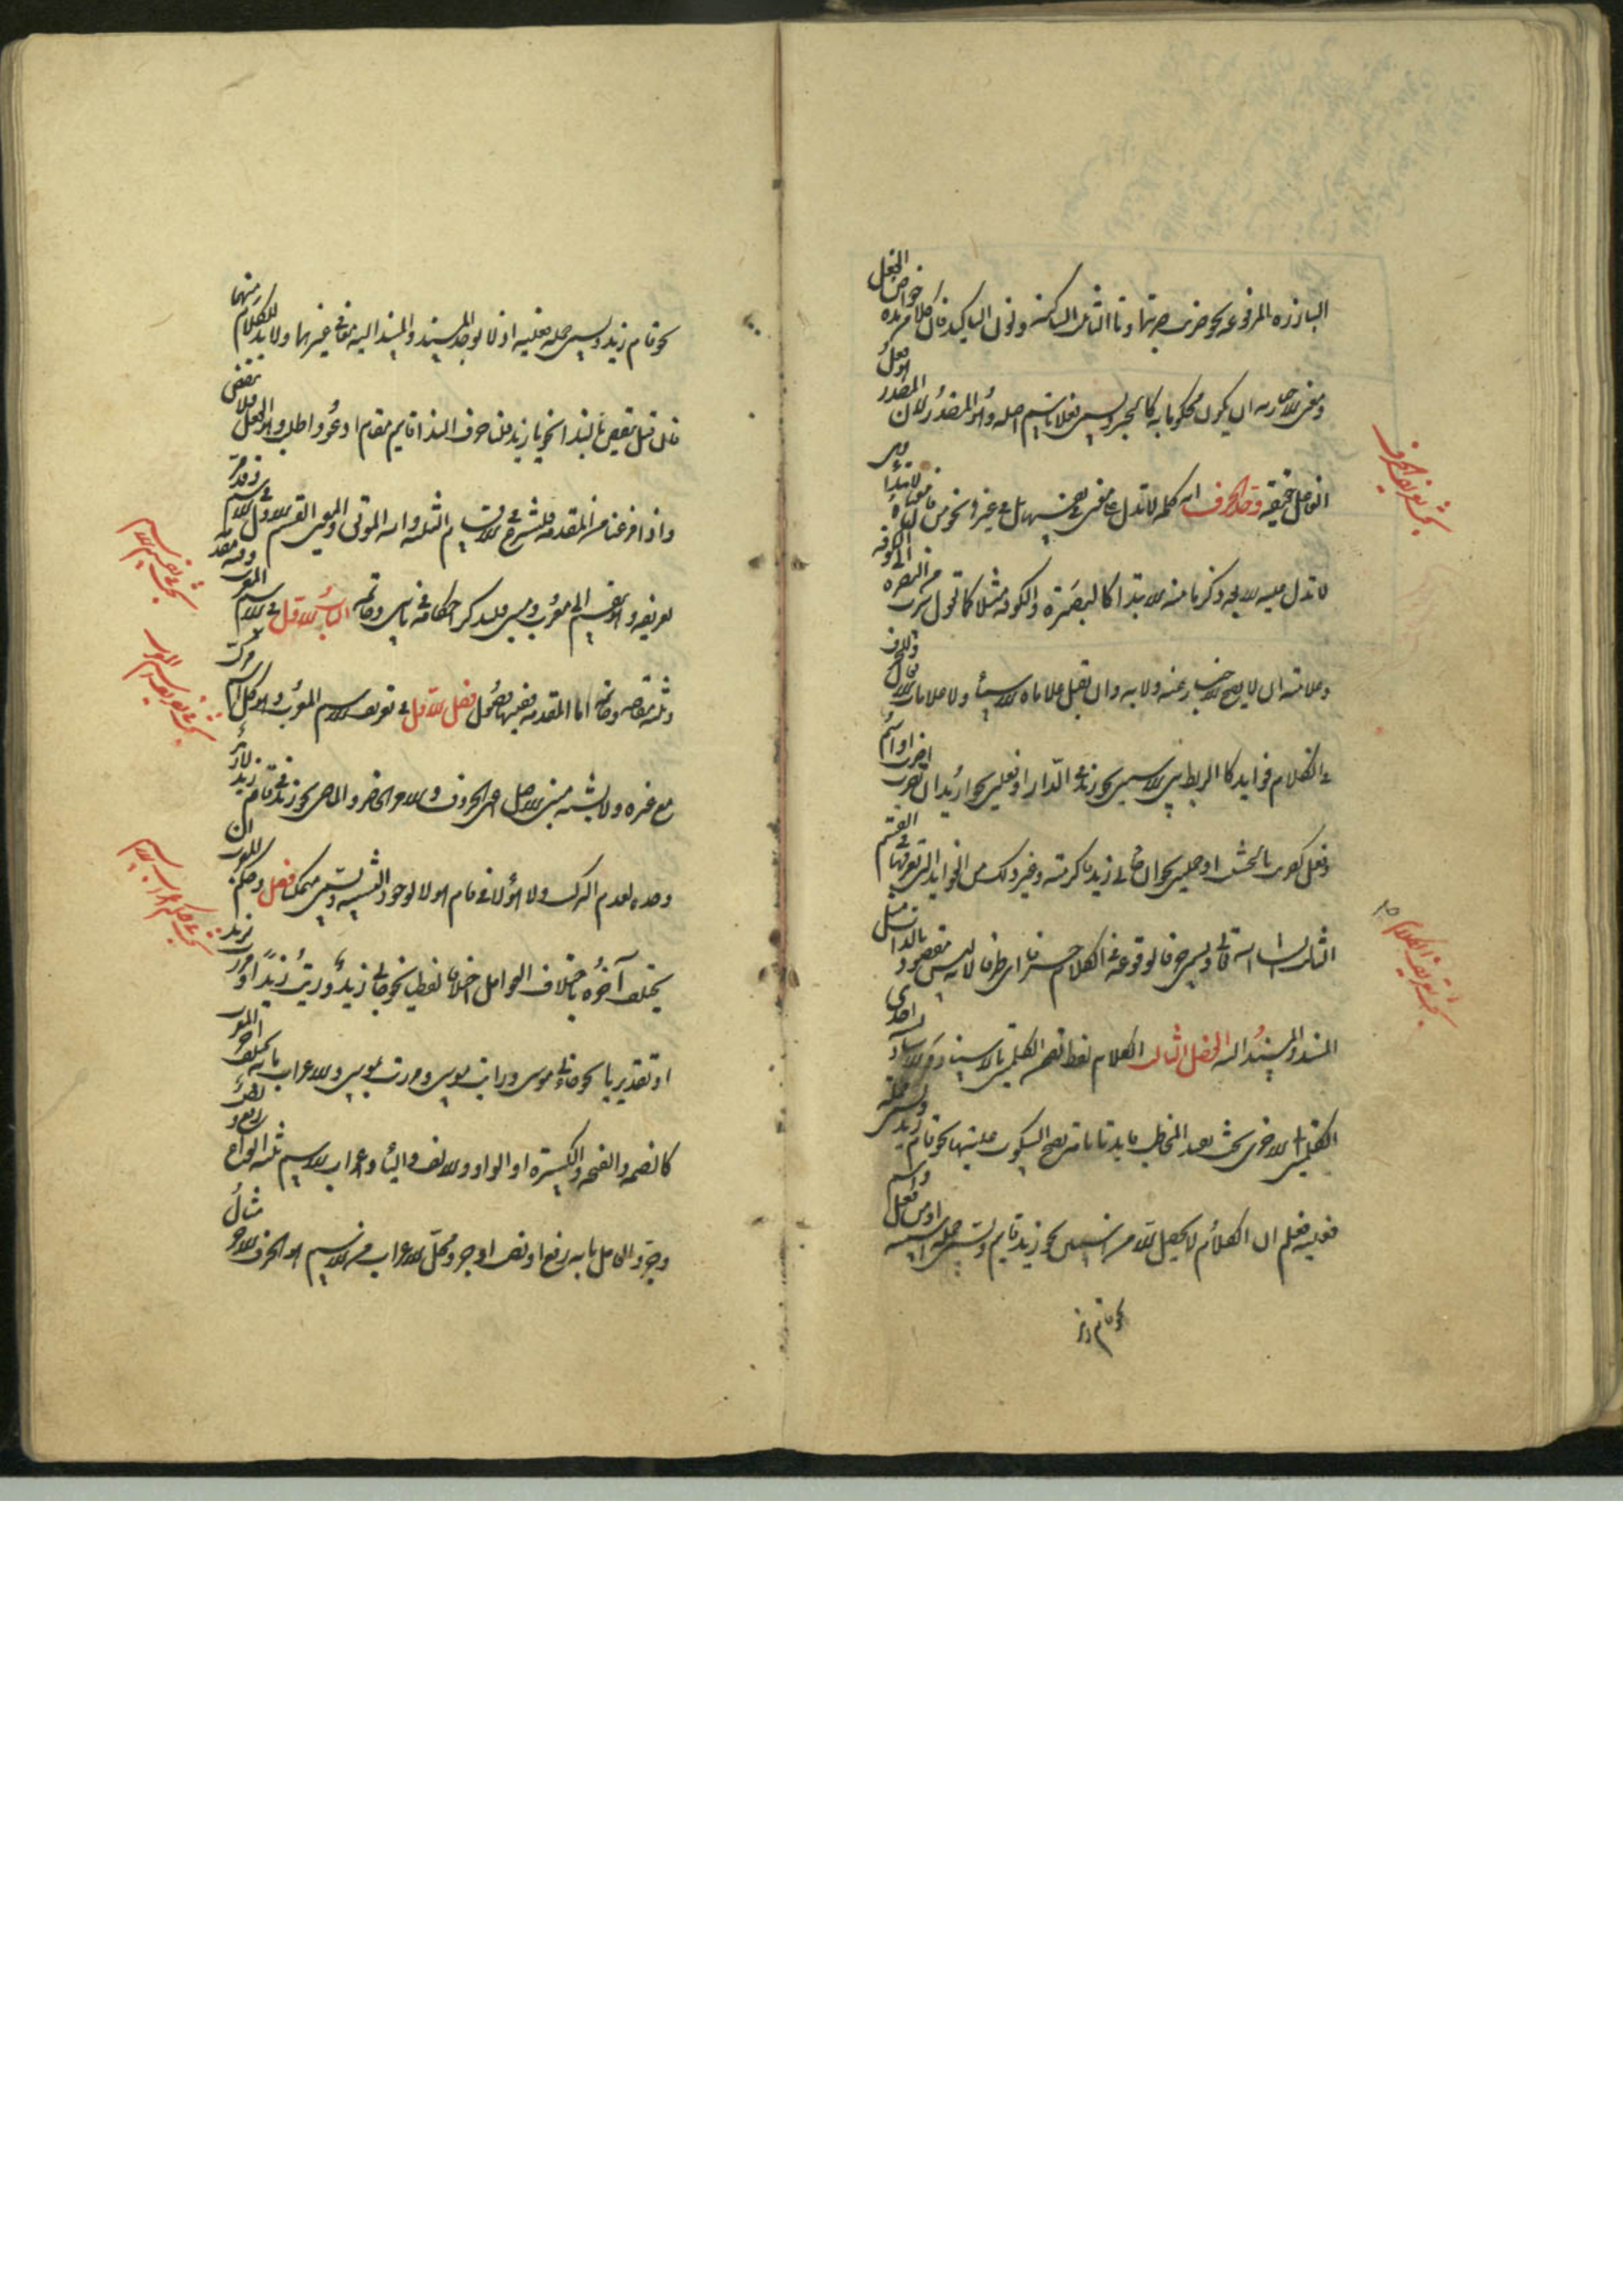 البارزة المرفوعة نحو ضربت ضربتما وتا التانيث الساكنة ونون التاكيد فان كلا من هذه خواص الفعل
ومعنى الاخبار به ان يكون محكوما به كالخبر ويسمى فعلا باسم اصله وهو المصدر لان المصدر هو فعل
الفاعل حقيقة وحد الحرف انه كلمة لا تدل على معنى في نفسها بل في غيرها نحو من فان معناه الابتداء وهي
لا تدل عليه الا بعد ذكر ما منه الابتدا كالبصرة والكوفة مثلا كما تقول سرت من البصرة الى الكوفة
وعلامته ان لا يصح الاخبار عنه ولا به وان لا يقبل علامات الاسماء ولا علامات الافعال وللحرف
في الكلام فوايد كالربط بين الاسمين نحو زيد في الدار او فعلين نحو اريد ان تضرب او اسم
وفعل كضربت بالخشبة او جملتين نحو ان جاءني زيد فاكرمته وغير ذلك من الفوايد التي تعرفها في القسم
الثالث انشاء الله تعالى ويسمى حرفا لوقوعه في الكلام حرفا اي طرفا لانه ليس مقصودا بالذات مثل
المسند والمسند اليه الفصل الثالث الكلام لفظ تضمن الكلمتين بالاسناد والاسناد نسبة احدى
الكلمتين الى الاخرى بحيث تفيد المخاطب فايدة تامة يصح السكوت عليها نحو قام زيد ويسمى جملة
فعلية فعلم ان الكلام لا يحصل الا من اسمين نحو زيد قايم ويسمى جملة اسمية او من فعل واسم
نحو قام زيد
نحو قام زيد ويسمى جملة فعلية اذ لا يوجد المسند والمسند اليه معا في غيرهما ولا بد للكلام منهما
فان قيل ينقض بالندا نحو يا زيد قلنا حرف الندا قايم مقام ادعو واطلب وهو الفعل فلا ينقض
واذا فرغنا من المقدمة فلنشرع في الاقسام الثلثة والله الموفق والمعين القسم الاول في الاسم وقد مر
تعريفه وهو ينقسم الى معرب ومبني فلنذكر احكامه في بابين وخاتمة الباب الاول في الاسم المعرب وفيه مقدمة
وثلثة مقاصد وخاتمة اما المقدمة ففيها فصول فصل الاول في تعريف الاسم المعرب وهو كل اسم مركب
مع غيره ولا يشبه مبني الاصل اعني الحروف والامر الحاضر والماضي نحو زيد في قام زيد لا زيد
وحده لعدم التركيب ولا هؤلاء في قام هؤلاء لوجود الشبه ويسمى متمكنا فصل وحكمه المعرب ان
يختلف آخره باختلاف العوامل اختلافا لفظيا نحو جاءني زيد ورايت زيدا ومررت بزيد
او تقديريا نحو جاءني موسى ورايت موسى ومررت بموسى والاعراب ما به يختلف اخر المعرب
كالضمة والفتحة والكسرة او الواو والالف والياء واعراب الاسم ثلثة انواع رفع ونصب
وجر والعامل ما به رفع او نصب او جر ومحل الاعراب من الاسم هو الحرف الاخر مثال
بحث تعريف الحرف
بحث تعريف الكلام
بحث في تعريف اسم المعرب